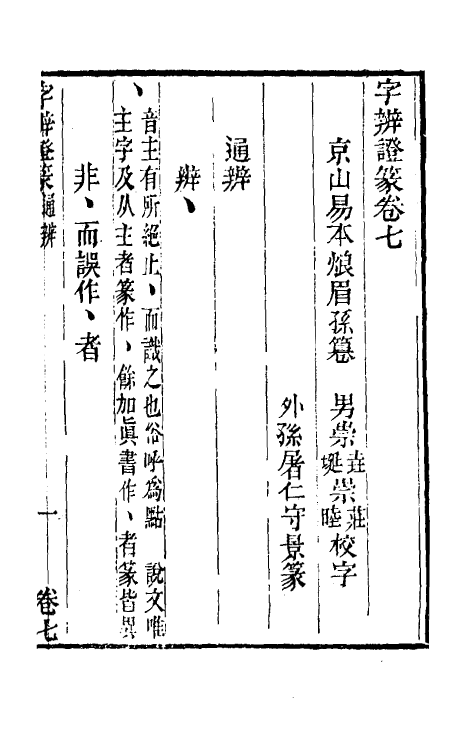 字辨證篆卷七
京山易本烺眉孫篹　男崇垚埏崇莊睦校字
外孫屠仁守景篆
通辨
辨丶
丶
音主有所絕止丶而識之也俗呼爲點　說文唯
主字及从主者篆作丶餘加眞書作丶者篆皆異
非丶而誤作丶者
字辨證篆 通辨 一 卷七